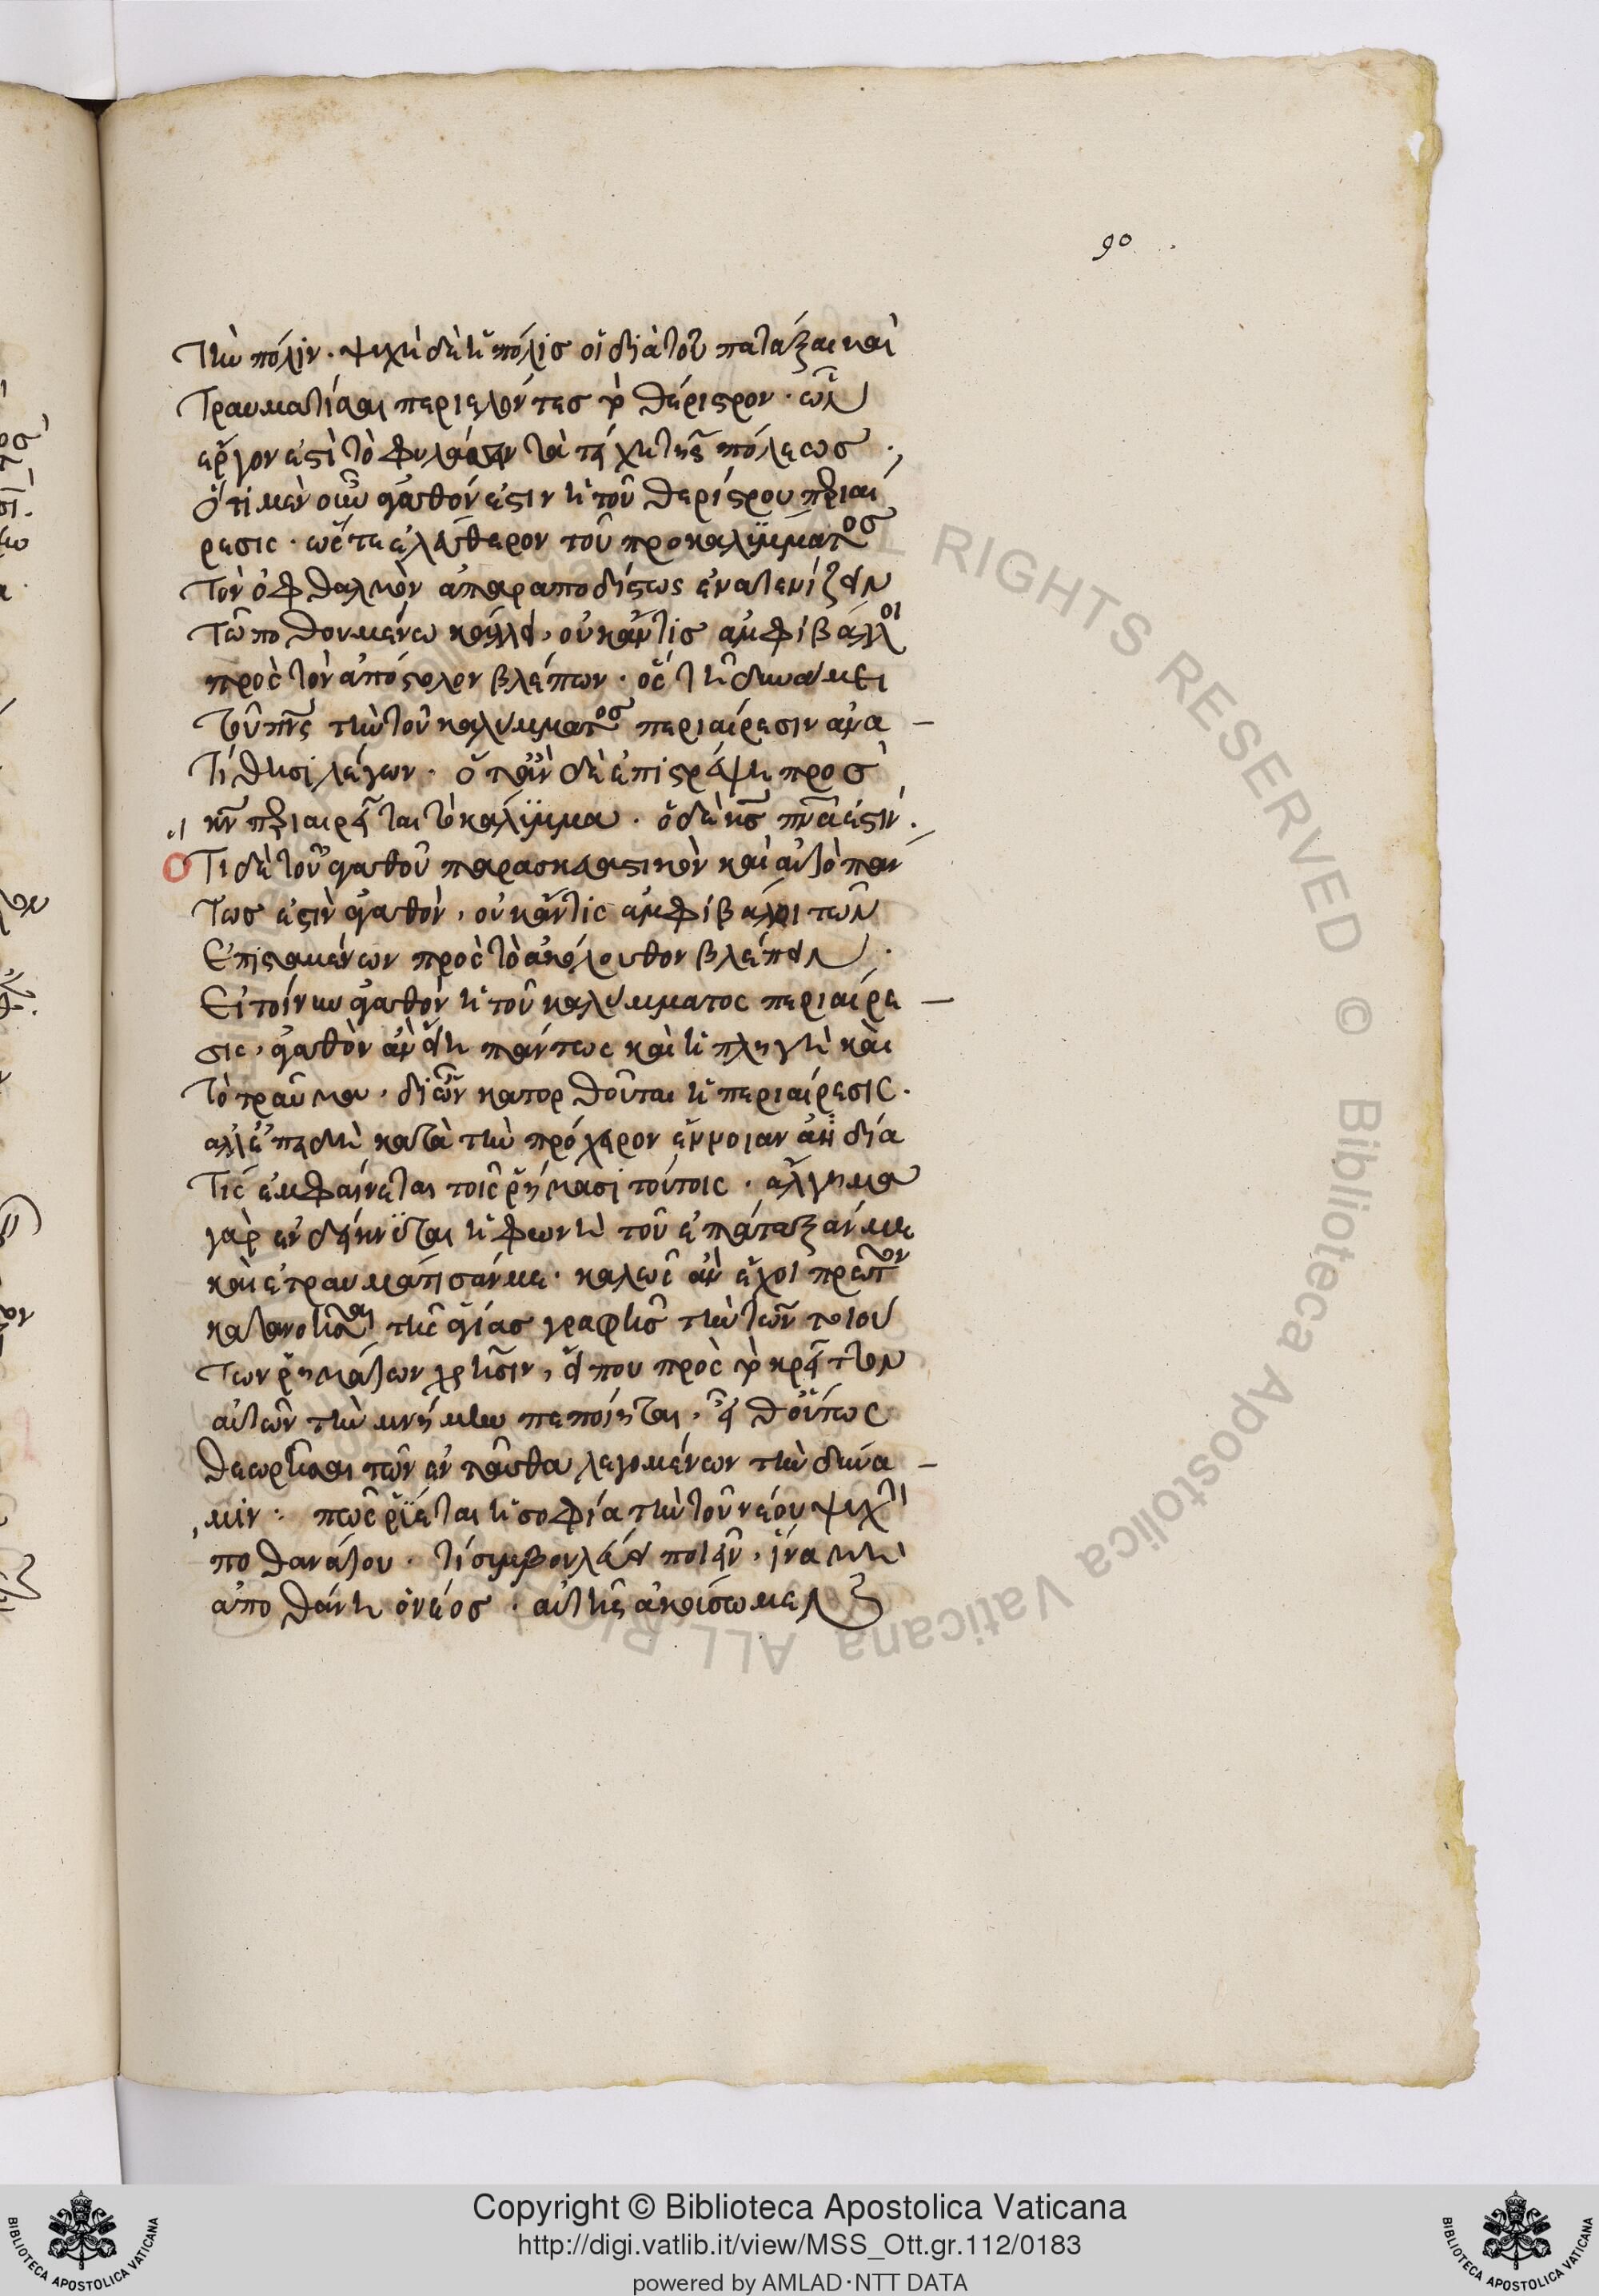 90
τὴν πόλιν. ψυχὴ δὲ ἡ πόλις οἱ διὰ τοῦ πατάξαι καὶ
τραυματίσαι περιελόντες τὸ θέριστρον. ὧν
ἔργον ἐστὶ τὸ φυλάσσειν τὰ τείχη τῆς πόλεως.
Ὅτι μὲν οὖν ἀγαθόν ἐστιν ἡ τοῦ θερίστρου περιαί
ρεσις. ὥστε ἐλεύθερον τοῦ προκαλύμματος
τὸν ὀφθαλμὸν ἀπαραποδίστως ἐνατενίζειν
τῶ ποθουμένω κάλλει, οὐκ ἄν τις ἀμφιβάλλοι
πρὸς τὸν ἀπόστολον βλέπων. ὃς τῆ δυνάμει
τοῦ πνς τὴν τοῦ καλύμματος περιαίρεσιν ἀνα
τίθησι λέγων. ὅταν δὲ ἐπιστρέψη προς
κν περιαιρεῖται τὸ κάλυμμα. ὁ δὲ κς πνα ἐστίν.
Ὅτι δὲ τοῦ ἀγαθοῦ παρασκευαστικὸν καὶ αὐτὸ πάν
τως ἐστὶν ἀγαθὸν, οὐκ ἄν τις ἀμφιβάλοι τῶν
ἐπισταμένων πρὸς τὸ ἀκόλουθον βλέπειν.
Εἰ τοίνυν ἀγαθὸν ἡ τοῦ καλύμματος περιαίρε
σις, ἀγαθὸν ἂν εἴη πάντως καὶ ἡ πληγὴ καὶ
τὸ τραῦμα, δι' ὧν κατορθοῦται ἡ περιαίρεσις.
ἀλλ' ἐπειδὴ κατὰ τὴν πρόχειρον ἔννοιαν ἀηδία
τίς ἐμφαίνεται τοῖς ῥήμασι τούτοις. ἄλγημα
γὰρ ἐνδείκνυται ἡ φωνὴ τοῦ ἐπάταξάν με
καὶ ἐτραυμάτισάν με. καλῶς ἂν ἔχοι πρῶτον
κατανοῆσαι τῆς ἁγίας γραφῆς τὴν τῶν τοιού
των ῥημάτων χρῆσιν, εἴ που πρὸς τὸ κρεῖττον
αὐτῶν τὴν μνήμην πεποίηται, εἶθ' οὕτως
θεωρῆσαι τῶν ἐνταῦθα λεγομένων τὴν δύνα
μιν. πῶς ῥύεται ἡ σοφία τὴν τοῦ νέου ψυχὴ
πο θανάτου. τί συμβουλεύει ποιεῖν, ἵνα μὴ
ἀποθάνη ὁ νέος. αὐτῆς ἀκούσωμεν
Copyright © Biblioteca Apostolica Vaticana
http://digi.vatlib.it/view/MSS_Ott.gr.112/0183
powered by AMLAD·NTT DATA